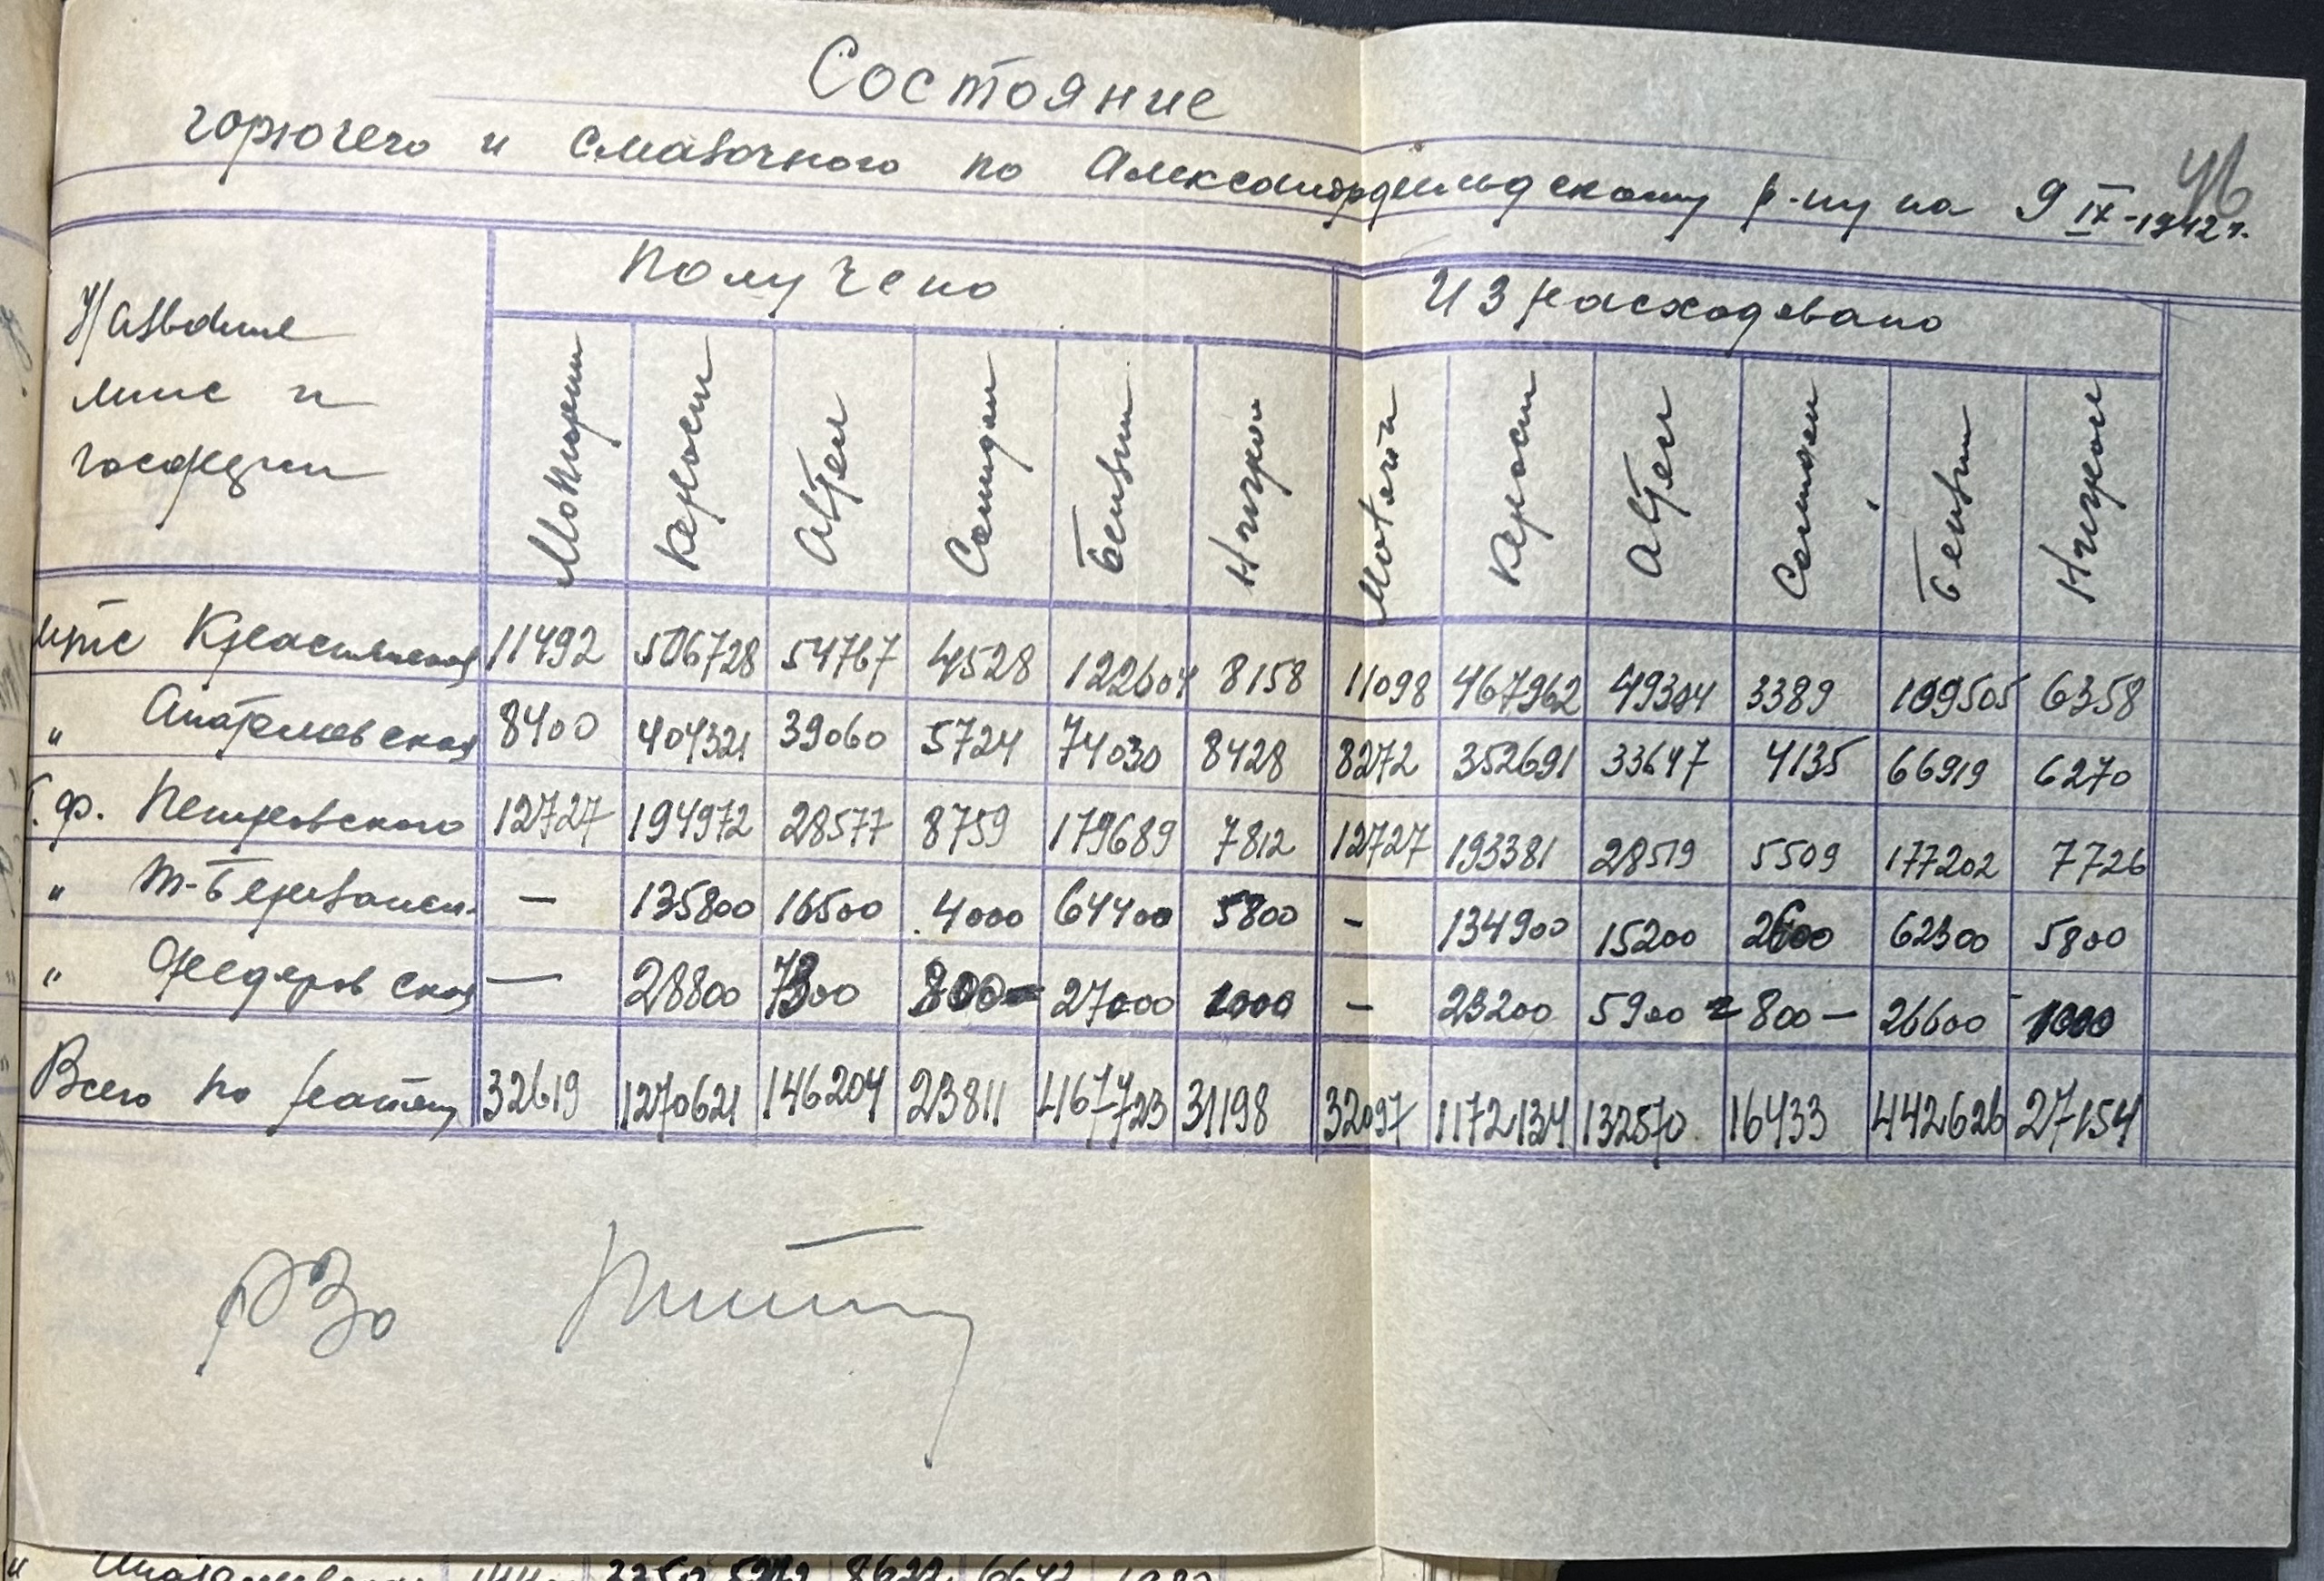 Состояние
горючего и смазочного по Александрфельдскому р-ну на 9 IX-1942 г.
46
Название мтс и госферм
Получено
Израсходовано
Моторин Керосин Автол Солидол Бензин Нигрол Моторин Керосин Автол Солидол Бензин Нигрол
мтс 11492 506728 54767 4528 122604 8158 11098 467962 49304 3389 109505 6358
" 8400 404321 39060 5724 74030 8428 8272 352691 33647 4135 66919 6270
Г.ф. Петровского 12727 194972 28577 8759 179689 7812 12727 193381 28519 5509 177202 7726
" Т-Березанск. — 135800 16500 4000 64400 5800 - 134900 15200 2600 62300 5800
" Федоровская — 28800 7300 800 27000 1000 - 23200 5900 800 - 26600 1000
Всего по району 32619 1270621 146204 23811 467723 31198 32097 1172134 132570 16433 442626 27154
РЗО